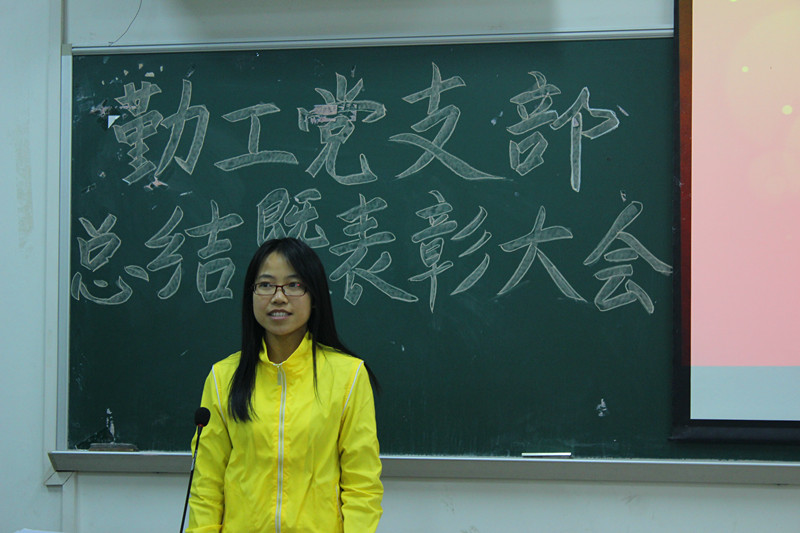 勤工党支部
总结既表彰大会